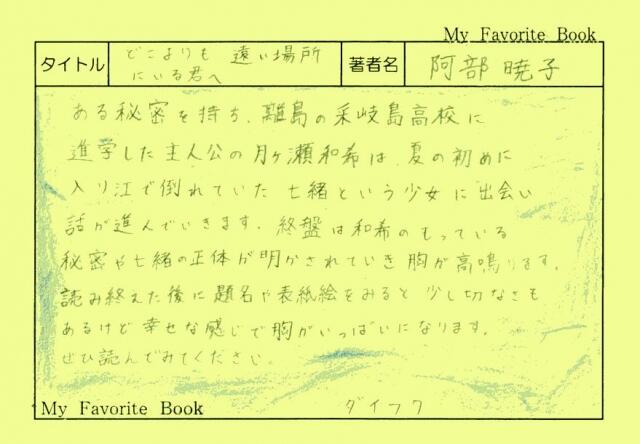 My Favorite Book
タイトル
どこよりも 遠い場所
にいる君へ
著者名
阿部 暁子
ある秘密を持ち、離島の采岐島高校に
進学した主人公の月ヶ瀬和希は、夏の初めに
入り江で倒れていた 七緒という少女に出会い
話が進んでいきます。終盤は和希のもっている
秘密や七緒の正体が明かされていき 胸が高鳴ります。
読み終えた後に題名や表紙絵をみると 少し切なさも
あるけど幸せな感じで胸がいっぱいになります。
ぜひ読んでみてください。
My Favorite Book
ダイフク